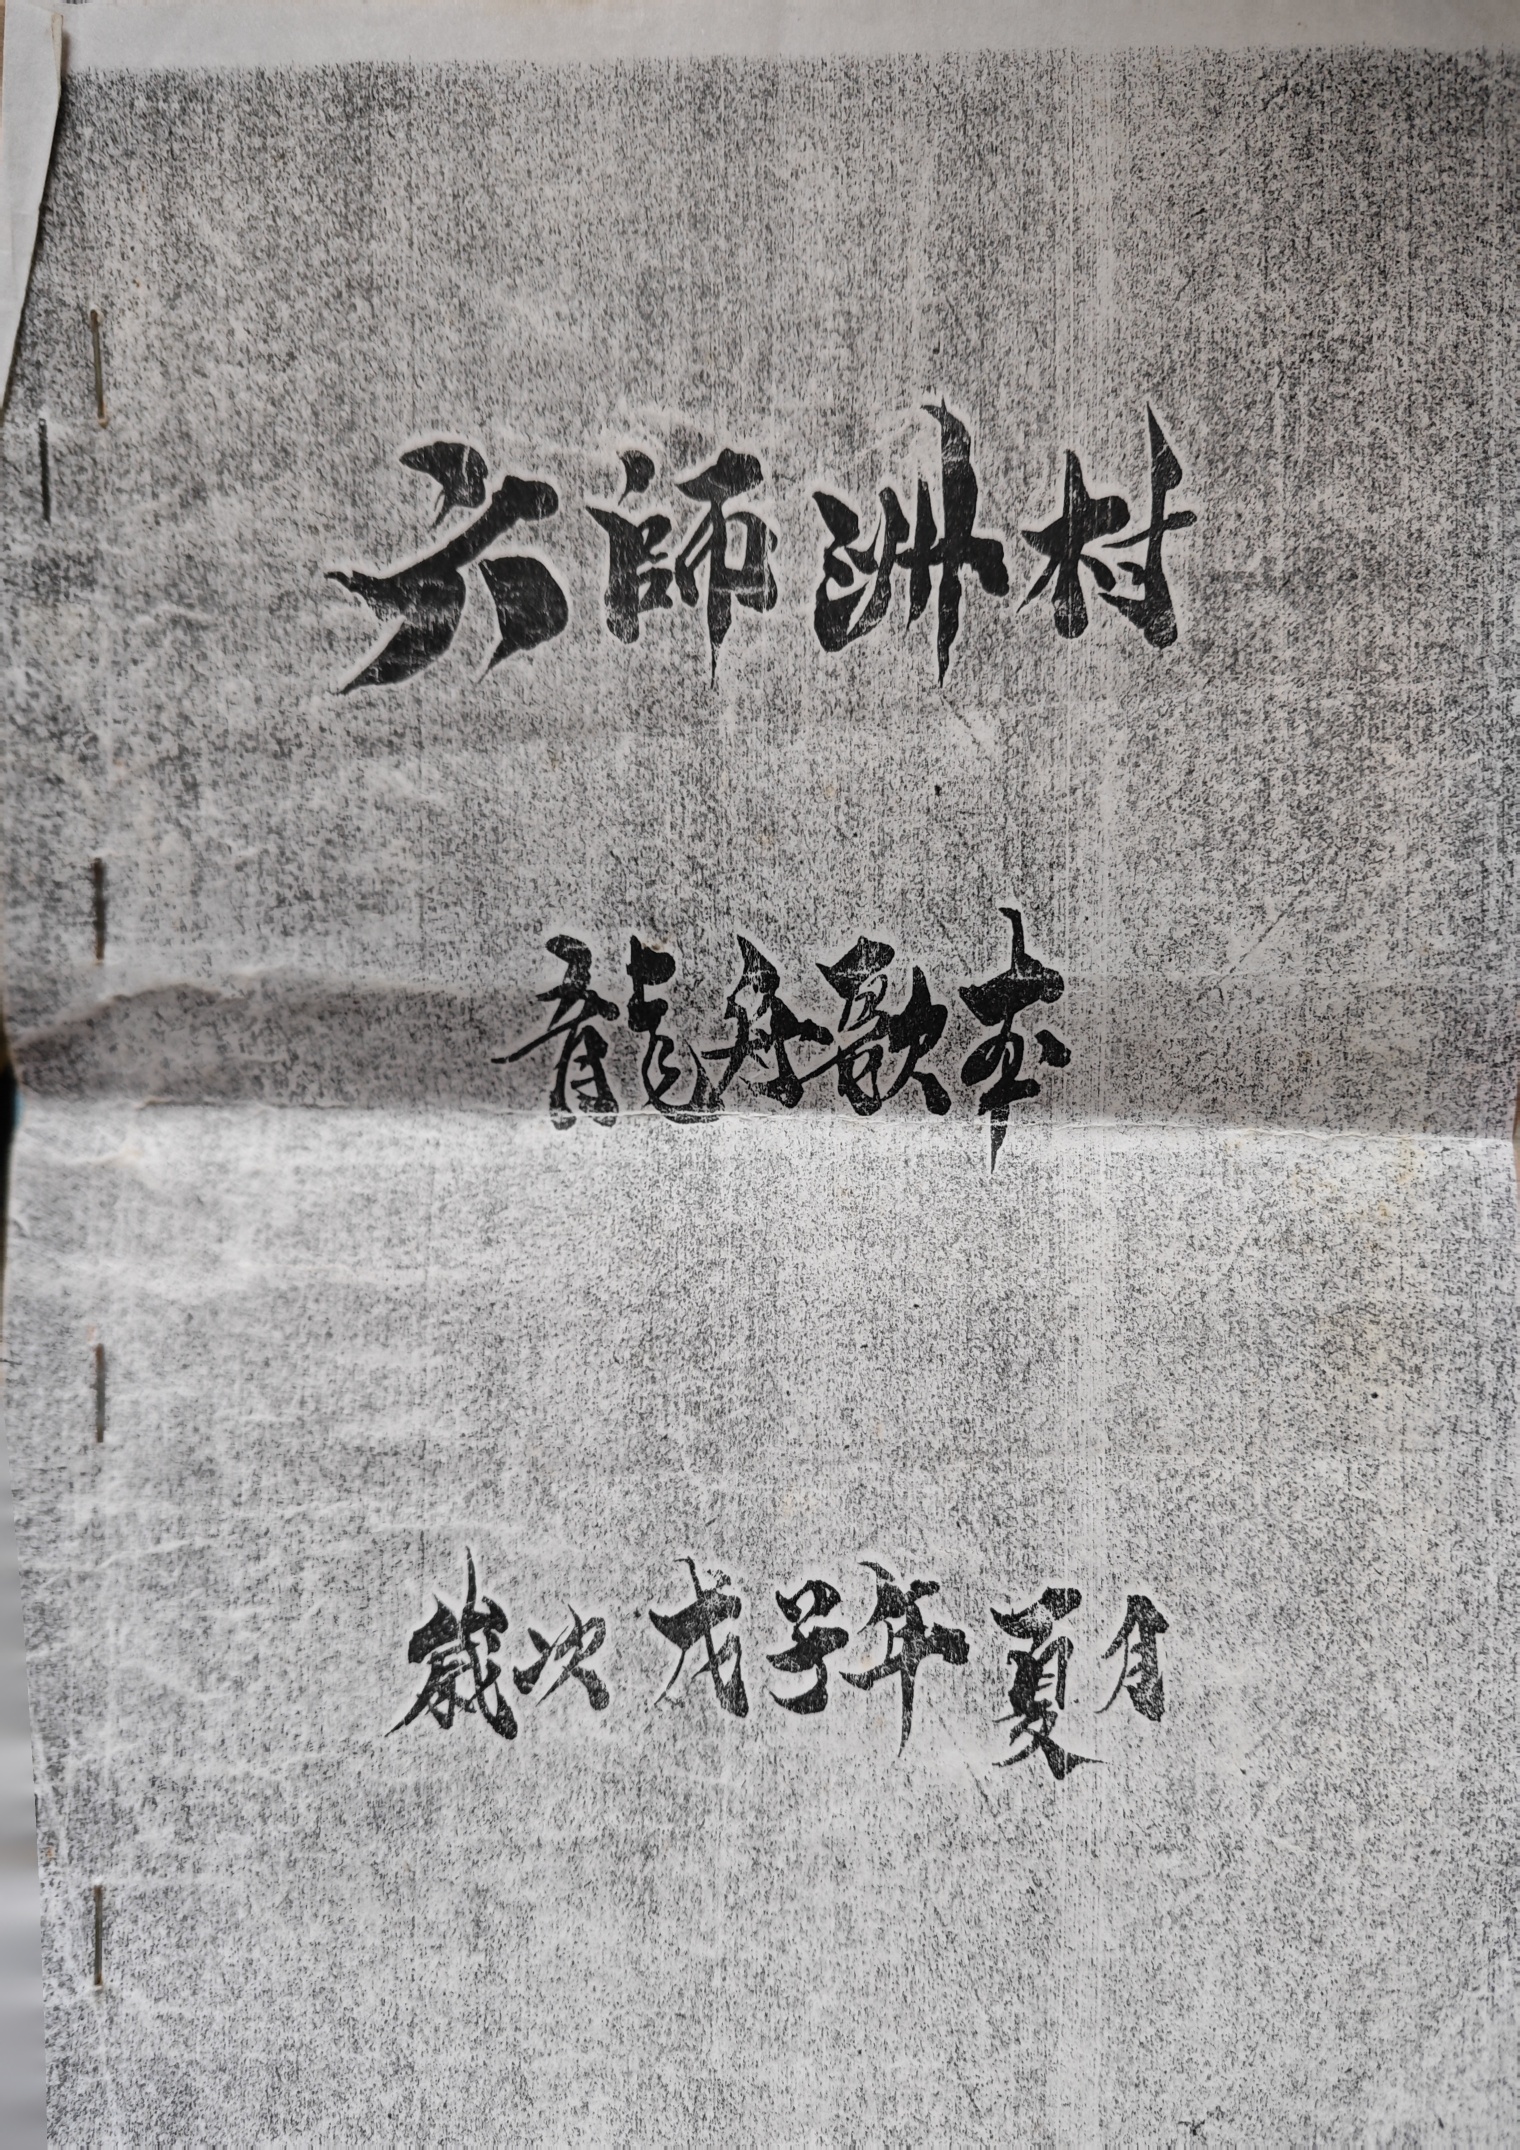 六師洲村
龍舟歌本
歲次戊子年夏月